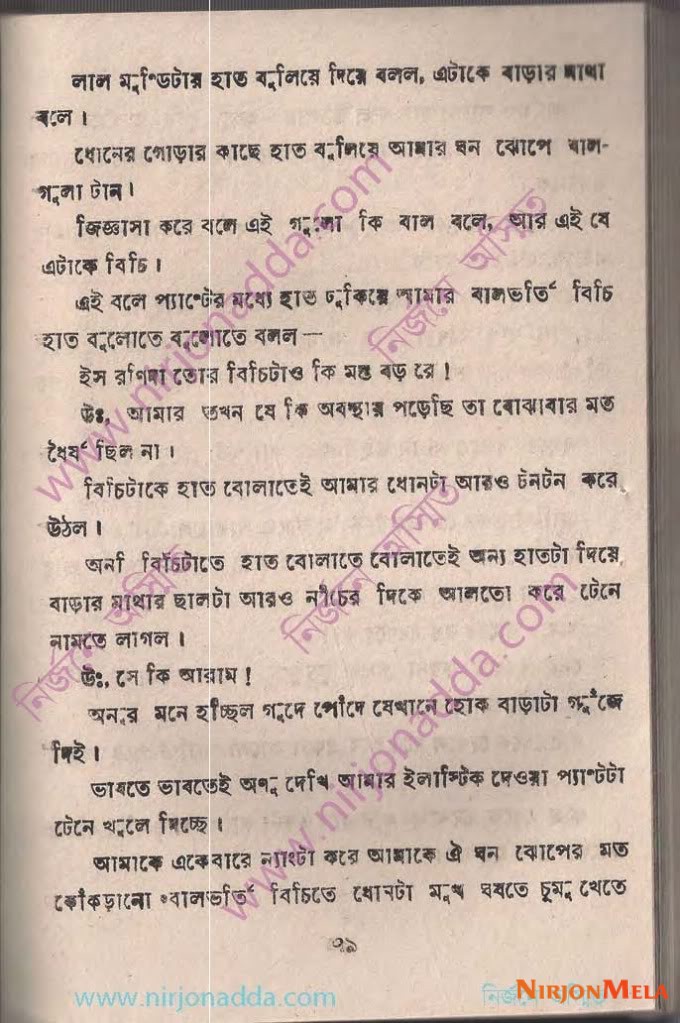 লাল মুন্ডিটার হাত বুলিয়ে দিয়ে বলল, এটাকে বাড়ার মাথা
বলে।
ধোনের গোড়ার কাছে হাত বুলিয়ে আমার ঘন ঝোপে বাল-
গুলা টান।
জিজ্ঞাসা করে বলে এই গুলো কি বাল বলে, আর এই যে
এটাকে বিচি।
এই বলে প্যান্টের মধ্যে হাত ঢুকিয়ে আমার বালভর্তি বিচি
হাত বুলোতে বুলোতে বলল—
ইস রণিদা তোর বিচিটাও কি মস্ত বড় রে!
উঃ, আমার তখন যে কি অবস্থায় পড়েছি তা বোঝাবার মত
ধৈর্য ছিল না।
বিচিটাকে হাত বোলাতেই আমার ধোনটা আরও টনটন করে
উঠল।
অনা বিচিটাতে হাত বোলাতে বোলাতেই অন্য হাতটা দিয়ে
বাড়ার মাথার ছালটা আরও নীচের দিকে আলতো করে টেনে
নামতে লাগল।
উঃ, সে কি আরাম!
অনুর মনে হচ্ছিল গুদে পোঁদে যেখানে হোক বাড়াটা গুঁজে
দিই।
ভাবতে ভাবতেই অনু দেখি আমার ইলাস্টিক দেওয়া প্যান্টটা
টেনে খুলে দিচ্ছে।
আমাকে একেবারে ন্যাংটা করে আমাকে ঐ ঘন ঝোপের মত
কোঁকড়ানো বালভর্তি বিচিতে ধোনটা মুখ ঘষতে চুমু খেতে
৭৯
www.nirjonadda.com
নির্জনে অস্মিত
NIRJONMELA